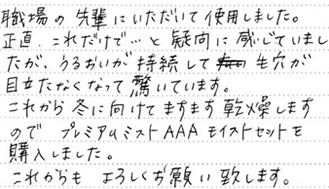 職場の先輩にいただいて使用しました。
正直、これだけで…と疑問に感じていまし
たが、うるおいが持続して毛穴が
目立たなくなって驚いています。
これから冬に向けてますます乾燥します
ので プレミアムミストAAAモイストセットを
購入しました。
これからも よろしくお願い致します。